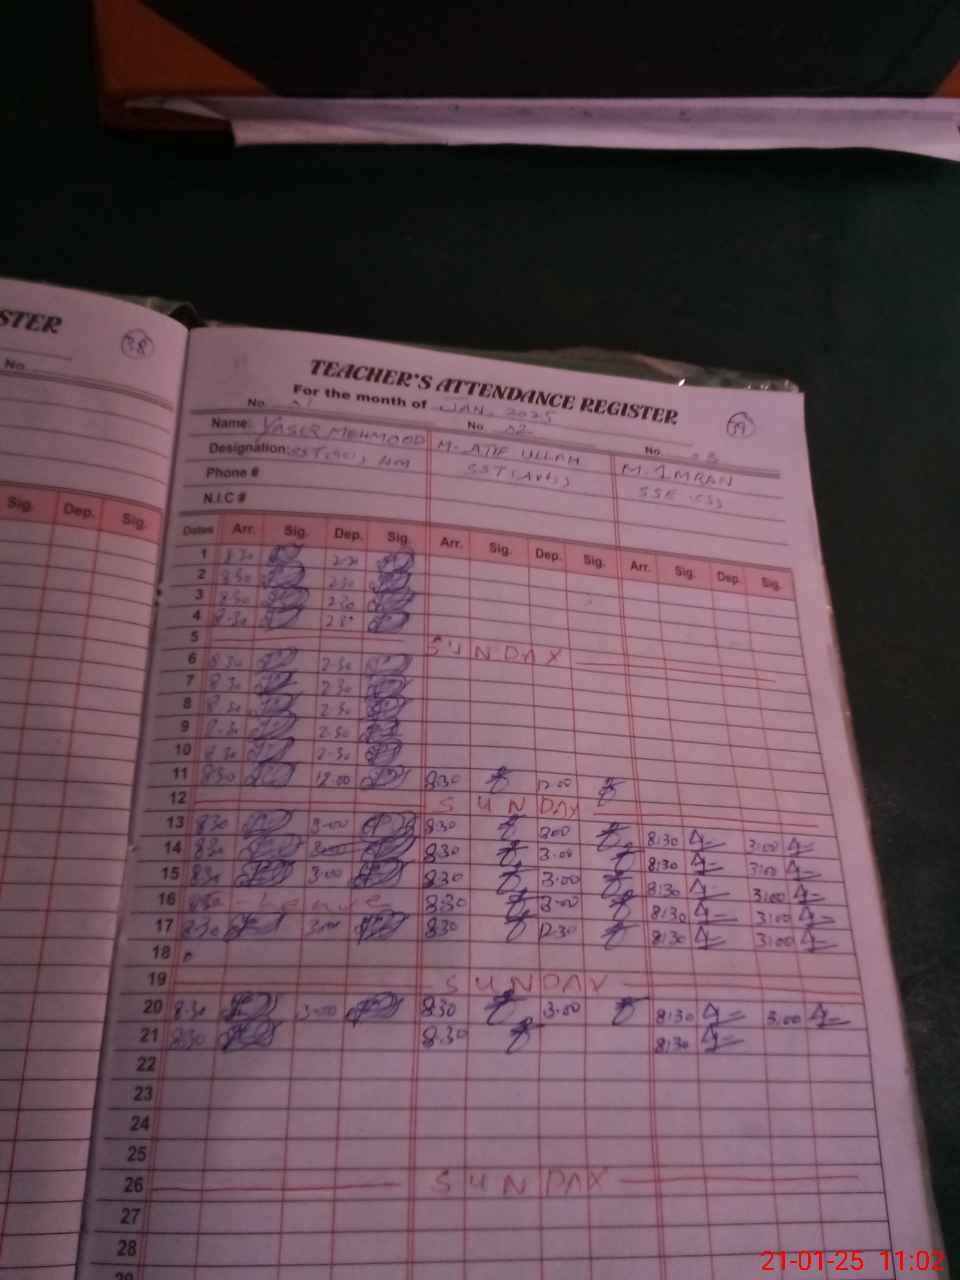 STER
38
No.
Sig. Dep. Sig.
TEACHER'S ATTENDANCE REGISTER
39
For the month of JAN. 2025
No. No. 02 No.
Name: YASIR MEHMOOD M. ATIF ULLAH M. IMRAN
Designation: SST
Phone #
N.I.C #
Dates Arr. Sig. Dep. Sig. Arr. Sig. Dep. Sig. Arr. Sig. Dep. Sig.
1 8.30 2.30
2 8.30 2.30
3 8.30 2.30
4 8.30 2.30
5 SUNDAY
6 8.30 2.30
7 8.30 2.30
8 8.30 2.30
9 8.30 2.30
10 8.30 2.30
11 8.30 12.00 8.30 12.00
12 SUNDAY
13 8.30 3.00 8.30 3.00 8:30 3:00
14 8.30 3.00 8.30 3.00 8:30 3:00
15 8.30 3.00 8.30 3.00 8:30 3:00
16 Leave 8.30 3.00 8:30 3:00
17 8.30 3.00 8.30 12.30 8:30 3:00
18
19 SUNDAY
20 8.30 3.00 8.30 3.00 8:30 3:00
21 8.30 8.30 8:30
22
23
24
25
26 SUNDAY
27
28
29
21-01-25 11:02